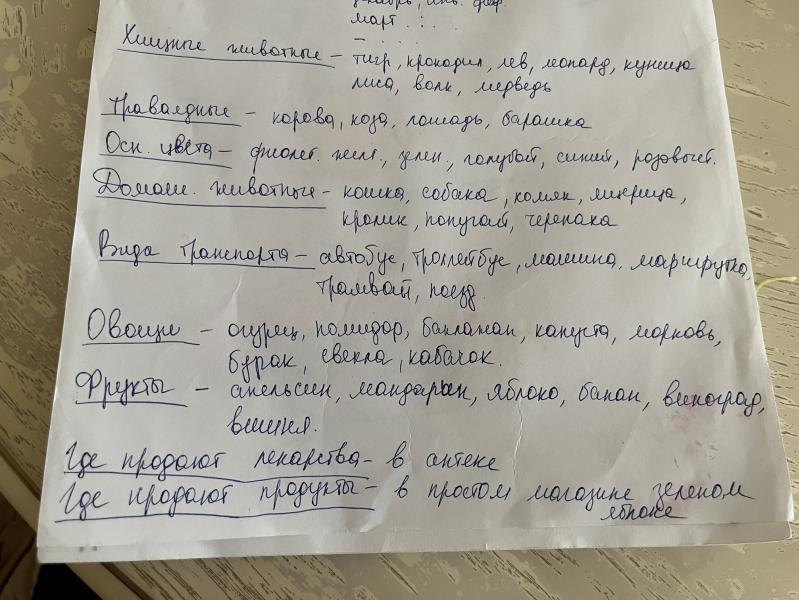 март . : .
Хищные животные – тигр, крокодил, лев, леопард, куница
лиса, волк, медведь
Траваядные – корова, коза, лошадь, барашка
Осн. цвета – фиолет. желт., зелен, голубой, синий, розовый.
Домаш. животные – кошка, собака, хомяк, ящерица,
кролик, попугай, черепака
Вида транспорта – автобус, троллейбус, машина, маршрутка,
трамвай, поезд.
Овощи – огурец, помидор, баклажан, капуста, морковь,
бурак, свекла, кабачок.
Фрукты – апельсин, мандарин, яблоко, банан, виноград,
вишня.
Где продают лекарства – в аптеке
Где продают продукты – в простом магазине зеленом
яблоке